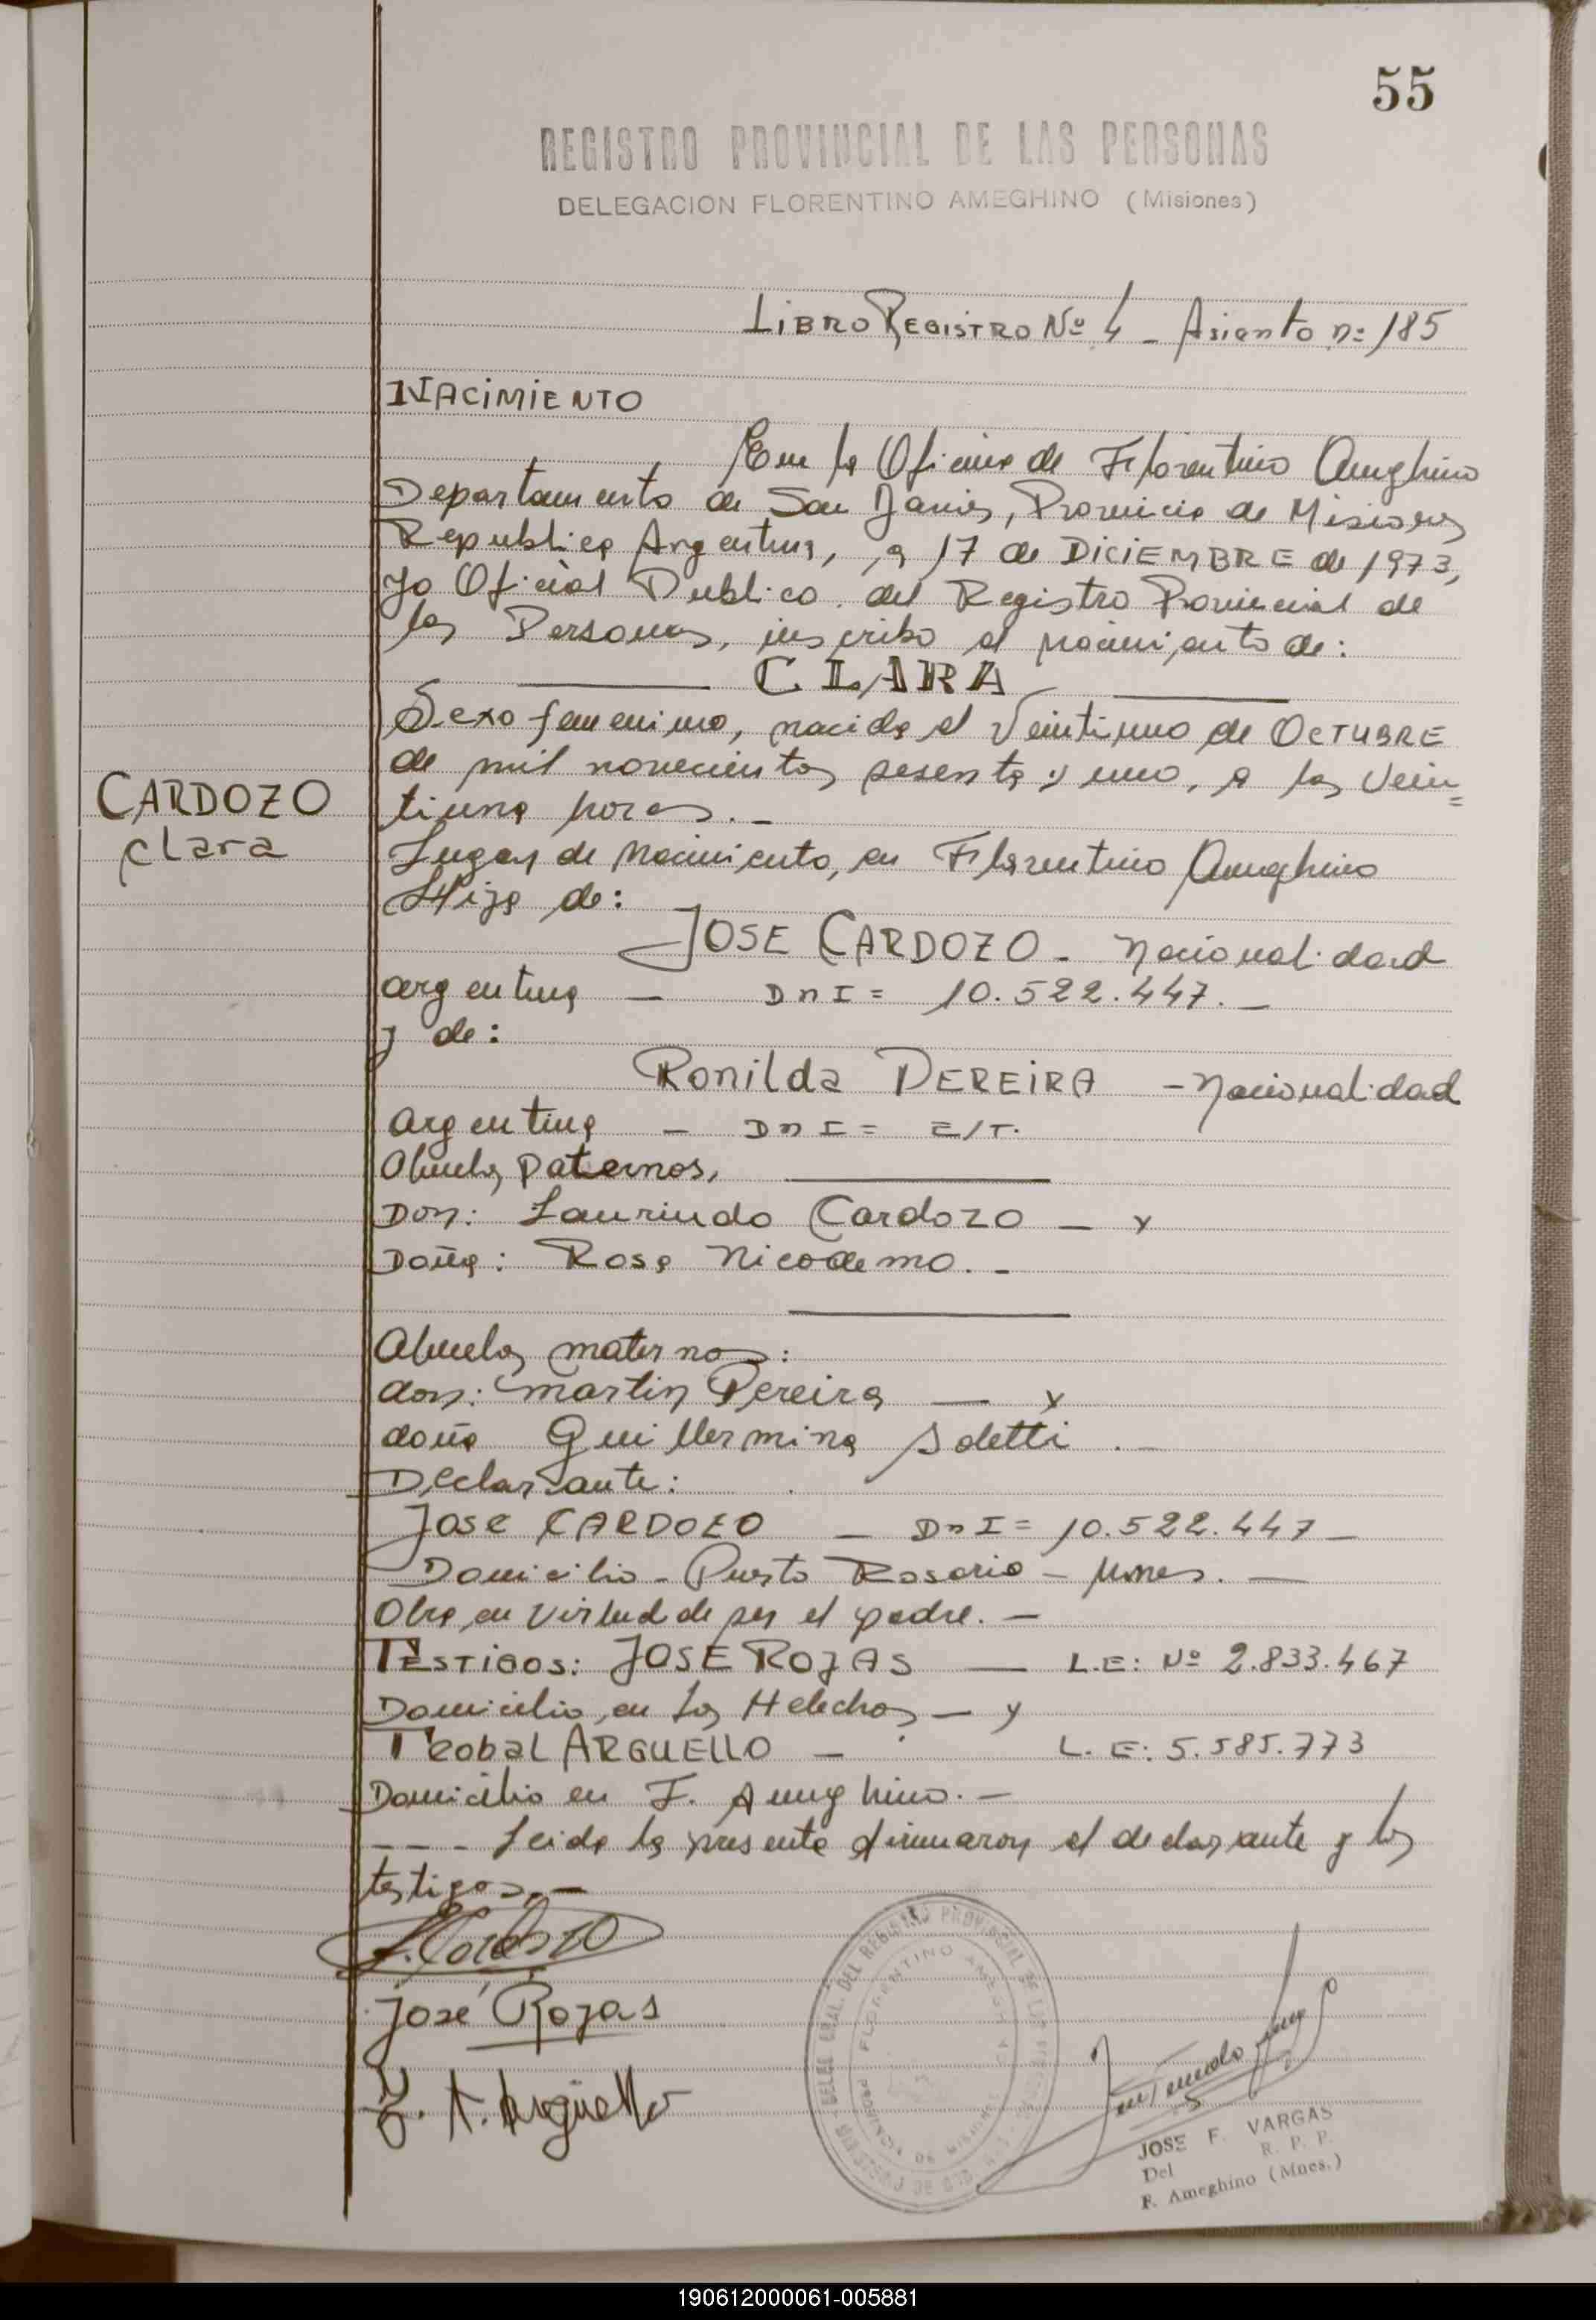 55
REGISTRO PROVINCIAL DE LAS PERSONAS
DELEGACION FLORENTINO AMEGHINO (Misiones)
LIBRO REGISTRO Nº 4 - Asiento nº 185
NACIMIENTO
En la Oficina de Florentino Ameghino
Departamento de San Javier, Provincia de Misiones
Republica Argentina, a 17 de DICIEMBRE de 1973,
yo Oficial Publico del Registro Provincial de
las Personas, inscribo el nacimiento de:
CLARA
Sexo femenino, nacida el Veintiuno de OCTUBRE
de mil novecientos sesenta y uno, a las Vein=
tiuna horas.-
CARDOZO
clara
Lugar de nacimiento, en Florentino Ameghino
Hija de:
JOSE CARDOZO - Nacionalidad
argentina - DnI = 10.522.447.-
y de:
Ronilda PEREIRA - Nacionalidad
argentina - DnI = E/T.
Abuelos paternos,
Don: Laurindo Cardozo - y
Doña: Rosa Nicodemo.-
Abuelos maternos:
don: Martin Pereira - y
doña Guillermina Soletti.-
Declarante:
Jose CARDOZO - DnI = 10.522.447 -
Domicilio - Puerto Rosario - Mnes. -
Obra en virtud de ser el padre. -
TESTIGOS: JOSE ROJAS - L.E: Nº 2.833.467
Domicilio, en Los Helechos - y
Teobal ARGUELLO - L.E: 5.585.773
Domicilio en F. Ameghino.-
--- Leida la presente firmaron el declarante y los
testigos.-
J. Cardozo
José Rojas
T. A. Arguello
FLORENTINO AMEGHINO
PROVINCIA DE MISIONES
JOSE F. VARGAS
Del R. P. P.
F. Ameghino (Mnes.)
190612000061-005881